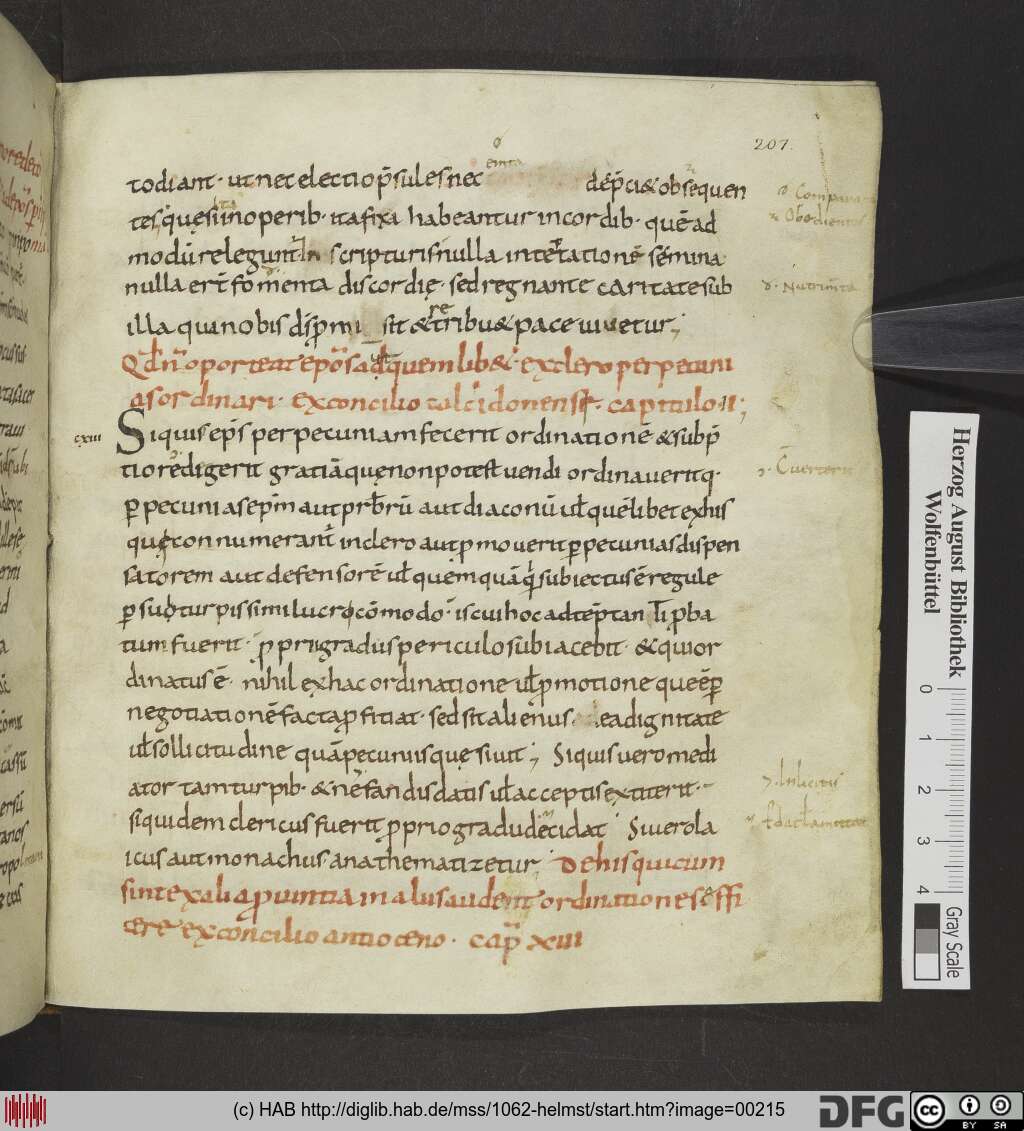 207.
todiant · ut nec electio p̄sules nec dep̄ci & obsequen
tes q̇ue sunt in operib· ita fixa habeantur in cordib· quē ad
modū relegunt̄ In scripturis nulla inter̄tationē sēmina
nulla er̄t fomenta discordię · sed regnante caritate sub
illa qui nobis disp̄mi sit & retribu& pace uiuetur ;
Qd̄ n̄ oporteat ep̄os ad quemlib& ex clero per pecuni
as ordinari · ex concilio calcidonense · capitulo II ;
cxiii Siquis ep̄s per pecuniam fecerit ordinationē & sub p̄
tio redigerit gratiā quę non potest uendi ordinaueritq·
p̄ pecunias ep̄m aut prb̄rū aut diaconū ul̄ quēlibet ex his
quę connumerant̄ in clero aut p̄mouerit p̄ pecunias dispen
satorem aut defensorē ul̄ quemquā q̇ subiectus ē regule
p̄ suo turpissimi lucri cōmodo · is cui hoc adtēptan ti p̄ba
tum fuerit · p̄prii gradus periculo subiacebit · & qui or
dinatus ē · nihil ex hac ordinatione ul̄ p̄motione que ē p̄
negotiationē facta p̄ficiat · sed sit alienus · ea dignitate
ul̄ sollicitudine quā pecuniis quęsiuit ; Siquis uero medi
ator tam turpib· & nefandis datis ul̄ acceptis extiterit ·
siquidem clericus fuerit p̄prio gradu decidat Si uero la
icus aut monachus · anathematizetur ; De his qui cum
sint ex alia p̄uintia in aliis audent ordinationes effi
cere ex concilio antioceno · cap̄ xiii
Herzog August Bibliothek
Wolfenbüttel
0 1 2 3 4
Gray Scale
(c) HAB http://diglib.hab.de/mss/1062-helmst/start.htm?image=00215
DFG
CC BY SA